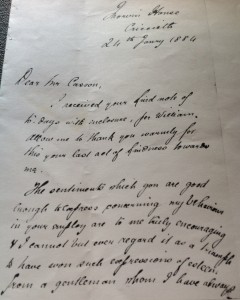 House
Criccieth
24th Jany 1884
Dear Mr Carson,
I received your kind note of
to day's with enclosure, for William,
allow me to thank you warmly for
this your last act of kindness towards
me.
The sentiments which you are good
enough to express concerning my behaviour
in your employ are to me truly encouraging
& I cannot but ever regard it as a
to have won such expressions of esteem
from a gentleman whom I have always